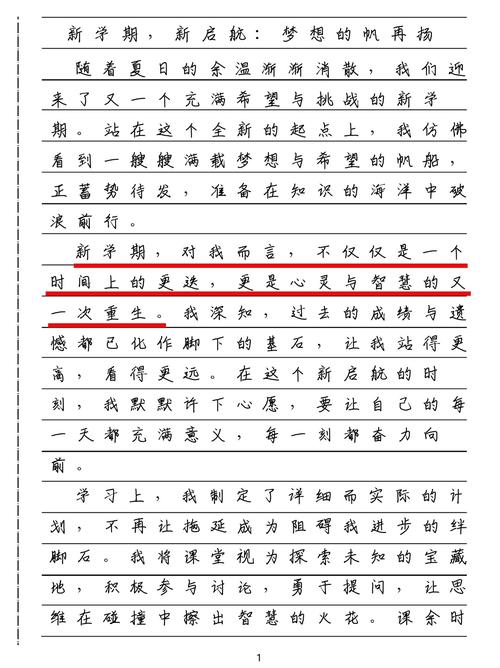 新学期，新启航：梦想的帆再扬
随着夏日的余温渐渐消散，我们迎
来了又一个充满希望与挑战的新学
期。站在这个全新的起点上，我仿佛
看到一艘艘满载梦想与希望的帆船，
正蓄势待发，准备在知识的海洋中破
浪前行。
新学期，对我而言，不仅仅是一个
时间上的更迭，更是心灵与智慧的又
一次重生。我深知，过去的成绩与遗
憾都已化作脚下的基石，让我站得更
高，看得更远。在这个新启航的时
刻，我默默许下心愿，要让自己的每
一天都充满意义，每一刻都奋力向
前。
学习上，我制定了详细而实际的计
划，不再让拖延成为阻碍我进步的绊
脚石。我将课堂视为探索未知的宝藏
地，积极参与讨论，勇于提问，让思
维在碰撞中擦出智慧的火花。课余时
1